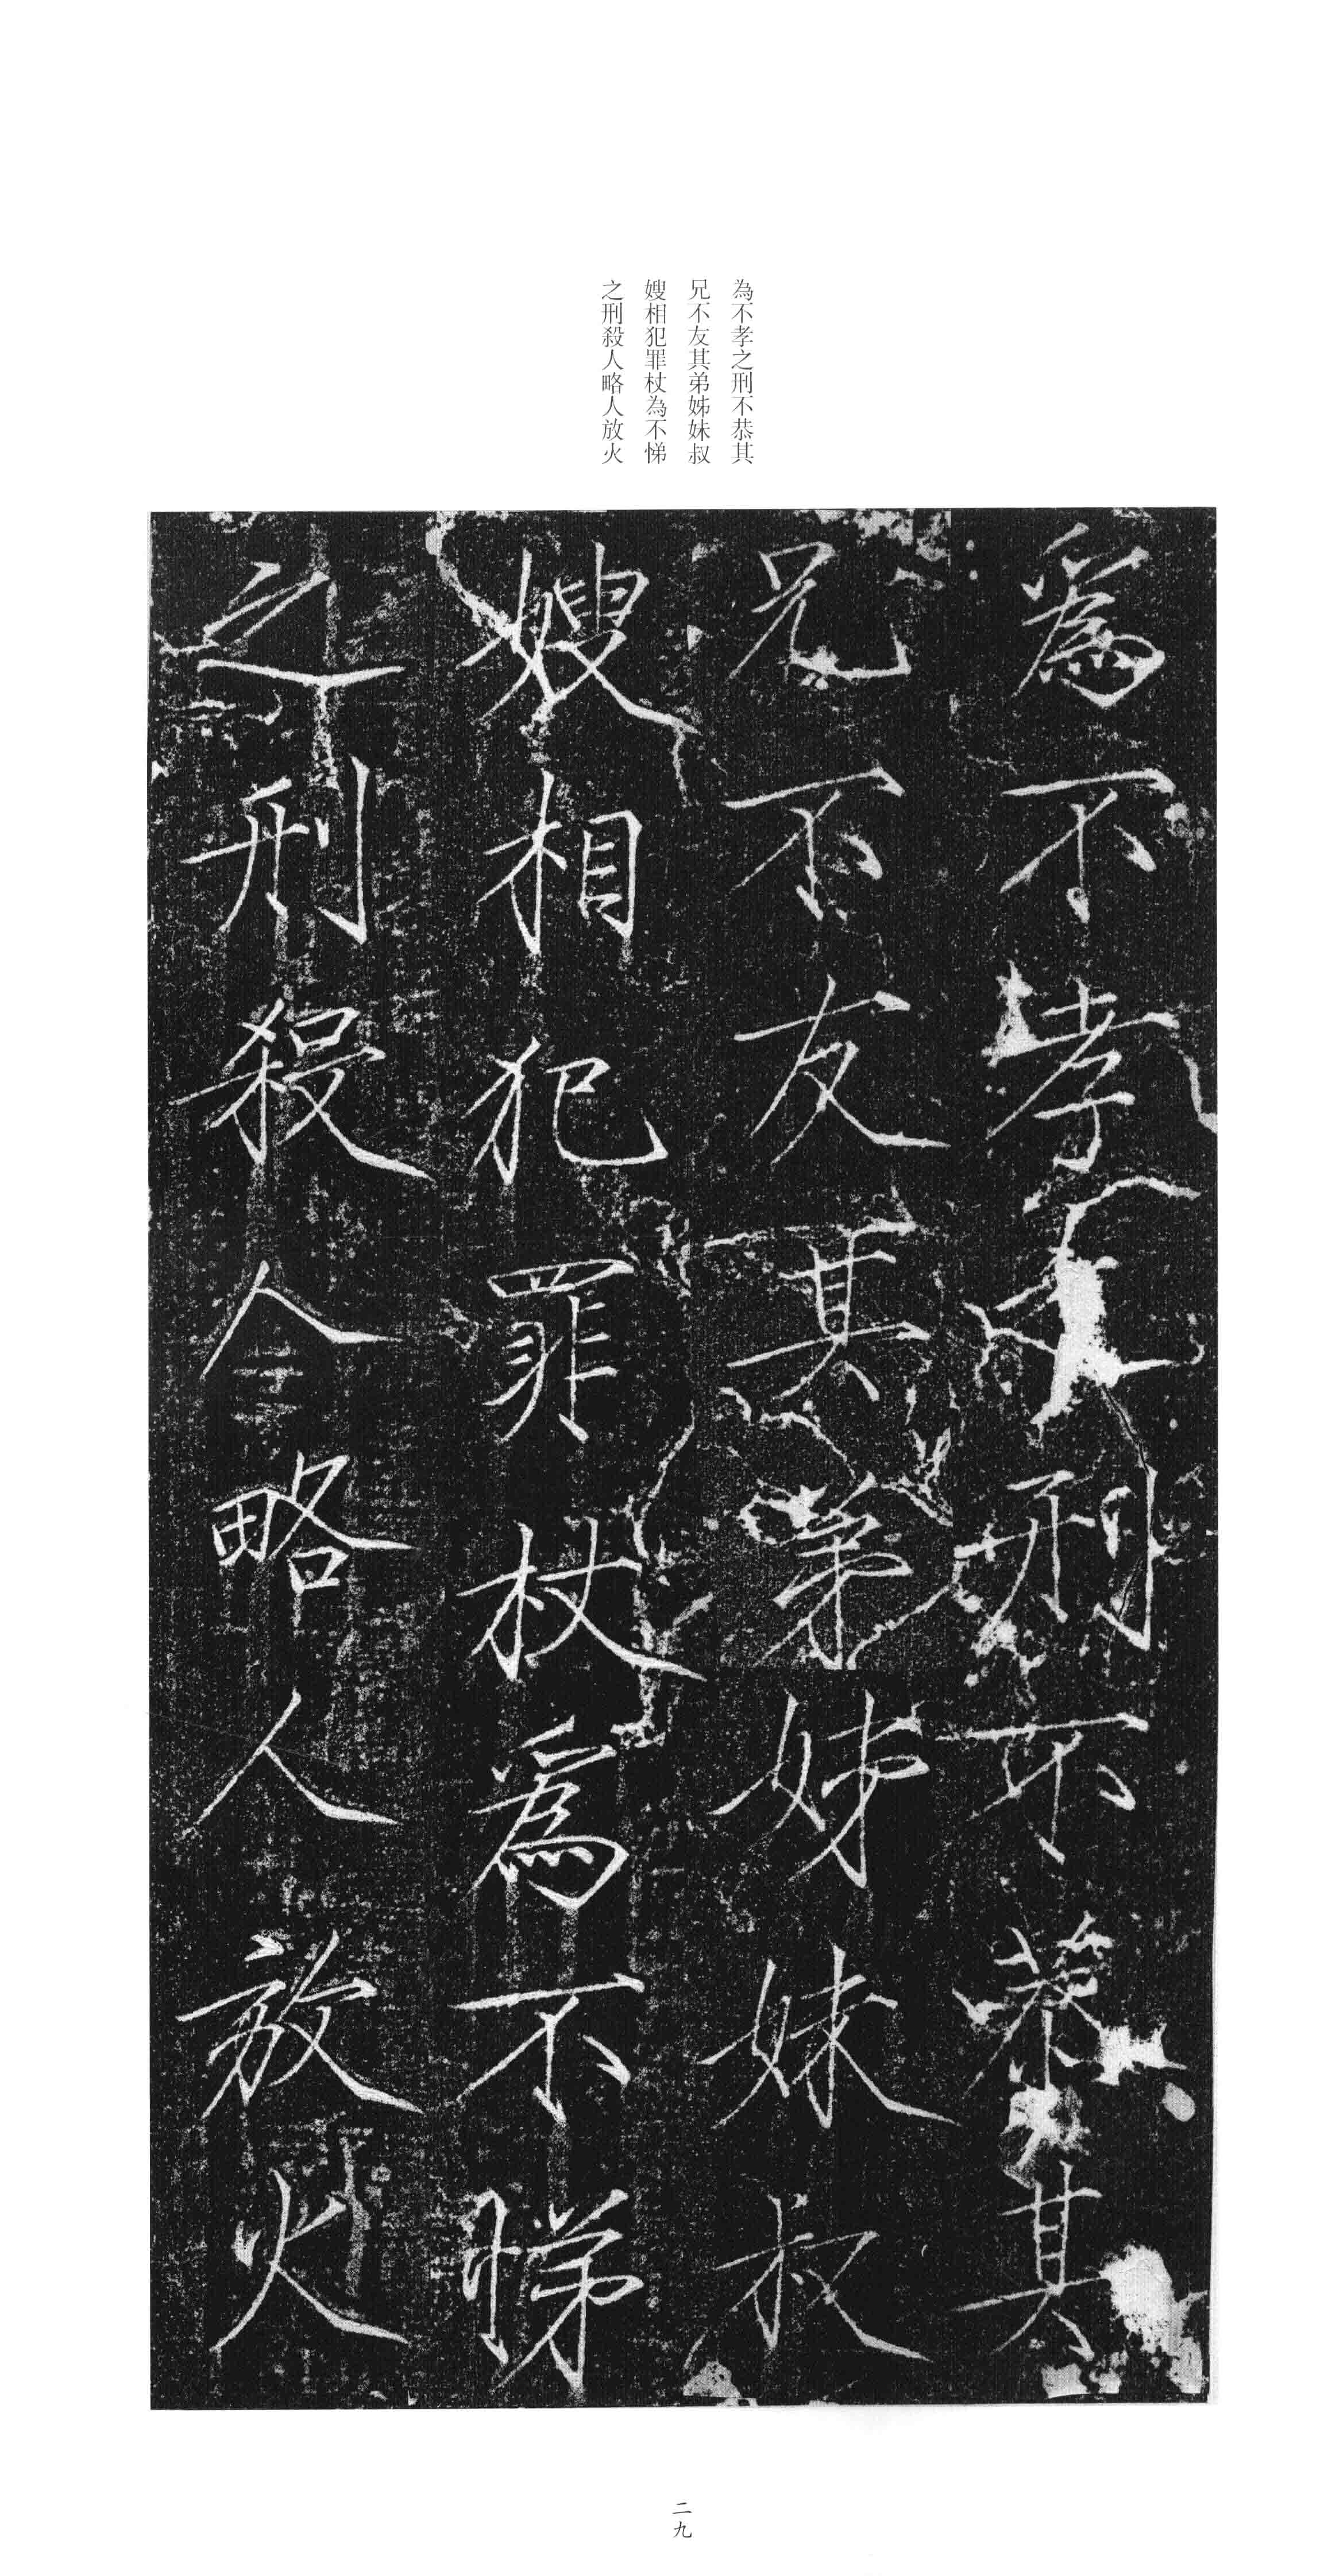 為不孝之刑不恭其
兄不友其弟姊妹叔
嫂相犯罪杖為不悌
之刑殺人略人放火
爲不孝之刑不恭其
兄不友其弟姊妹叔
嫂相犯罪杖爲不悌
之刑殺人略人放火
二九